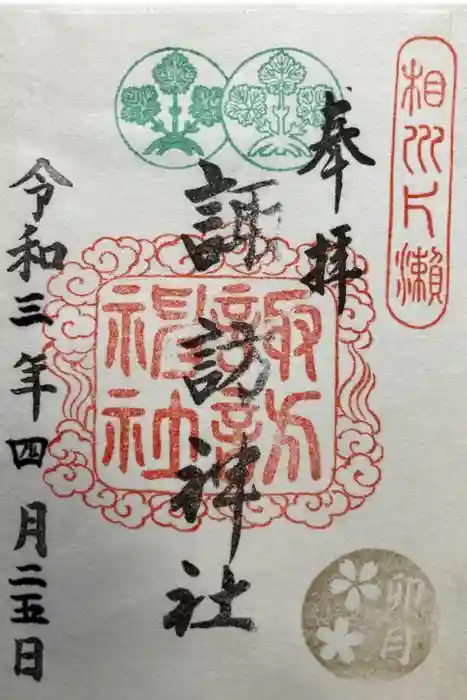 相州片瀬
奉拝
諏訪神社
諏訪神社
令和三年四月二五日
卯月